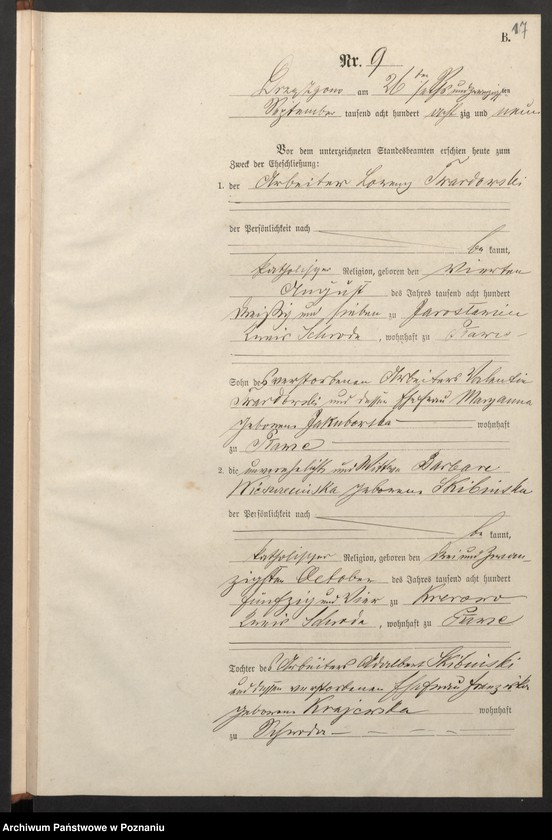 B. 17
Nr. 9
am 26ten
September tausend acht hundert acht zig und neun
Vor dem unterzeichneten Standesbeamten erschien heute zum
Zweck der Eheschließung:
1. der Arbeiter Lorenz Twardowski
der Persönlichkeit nach
be kannt,
katholischer Religion, geboren den vierten
August des Jahres tausend acht hundert
dreißig und sieben zu
Kreis Schroda, wohnhaft zu
Sohn des verstorbenen Arbeiters Valentin
Twardowski und dessen Ehefrau Maryanna
geborene Jakubowska wohnhaft
zu
2. die und Wittwe Barbara
geborene Skibinska
der Persönlichkeit nach
be kannt,
katholischer Religion, geboren den drei und zwan-
zigsten October des Jahres tausend acht hundert
fünfzig und vier zu Krerowo
Kreis Schroda, wohnhaft zu
Tochter des Arbeiters Adalbert Skibinski
und dessen verstorbenen Ehefrau Franziska
geborene Krajewska wohnhaft
zu Schroda
Archiwum Państwowe w Poznaniu